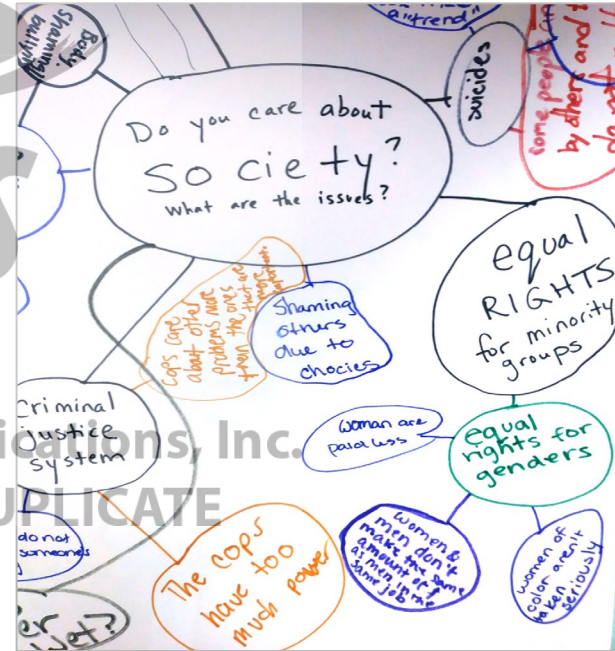 Body
Shaming/
bullying
a "trend"
suicides
some people
by others and
do not
Do you care about
society?
What are the issues?
equal
RIGHTS
for minority
groups
cops care
about other
problems more
then the ones
that are
more
important.
Shaming
others
due to
chocies
Criminal
justice
system
woman are
paid less
equal
rights for
genders
do not
someones
The cops
have too
much power
women &
men don't
make the same
amount of $
as men in the
same job
women of
color aren't
taken
seriously
ications, Inc.
UPLICATE